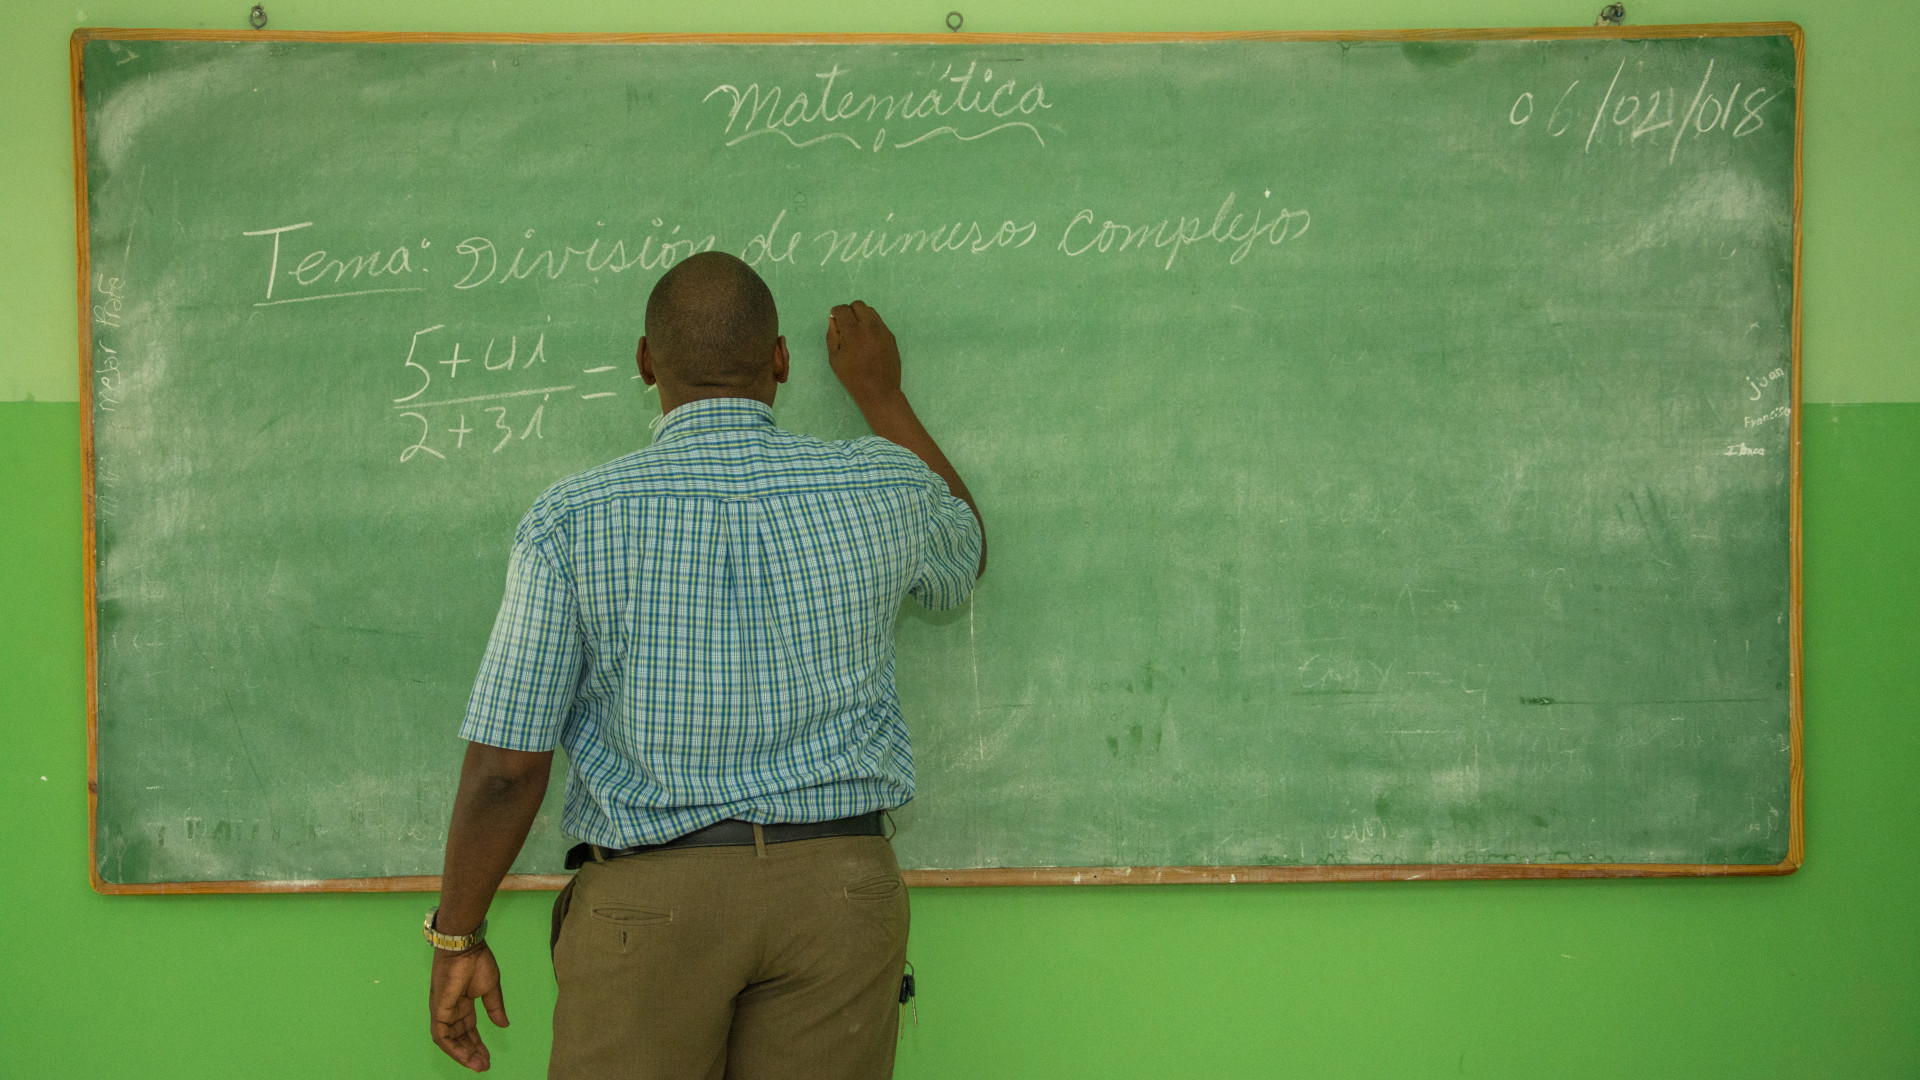 Matemática
06/02/018
Tema: División de números complejos
5+4i
2+3i
=
juan
Francisco